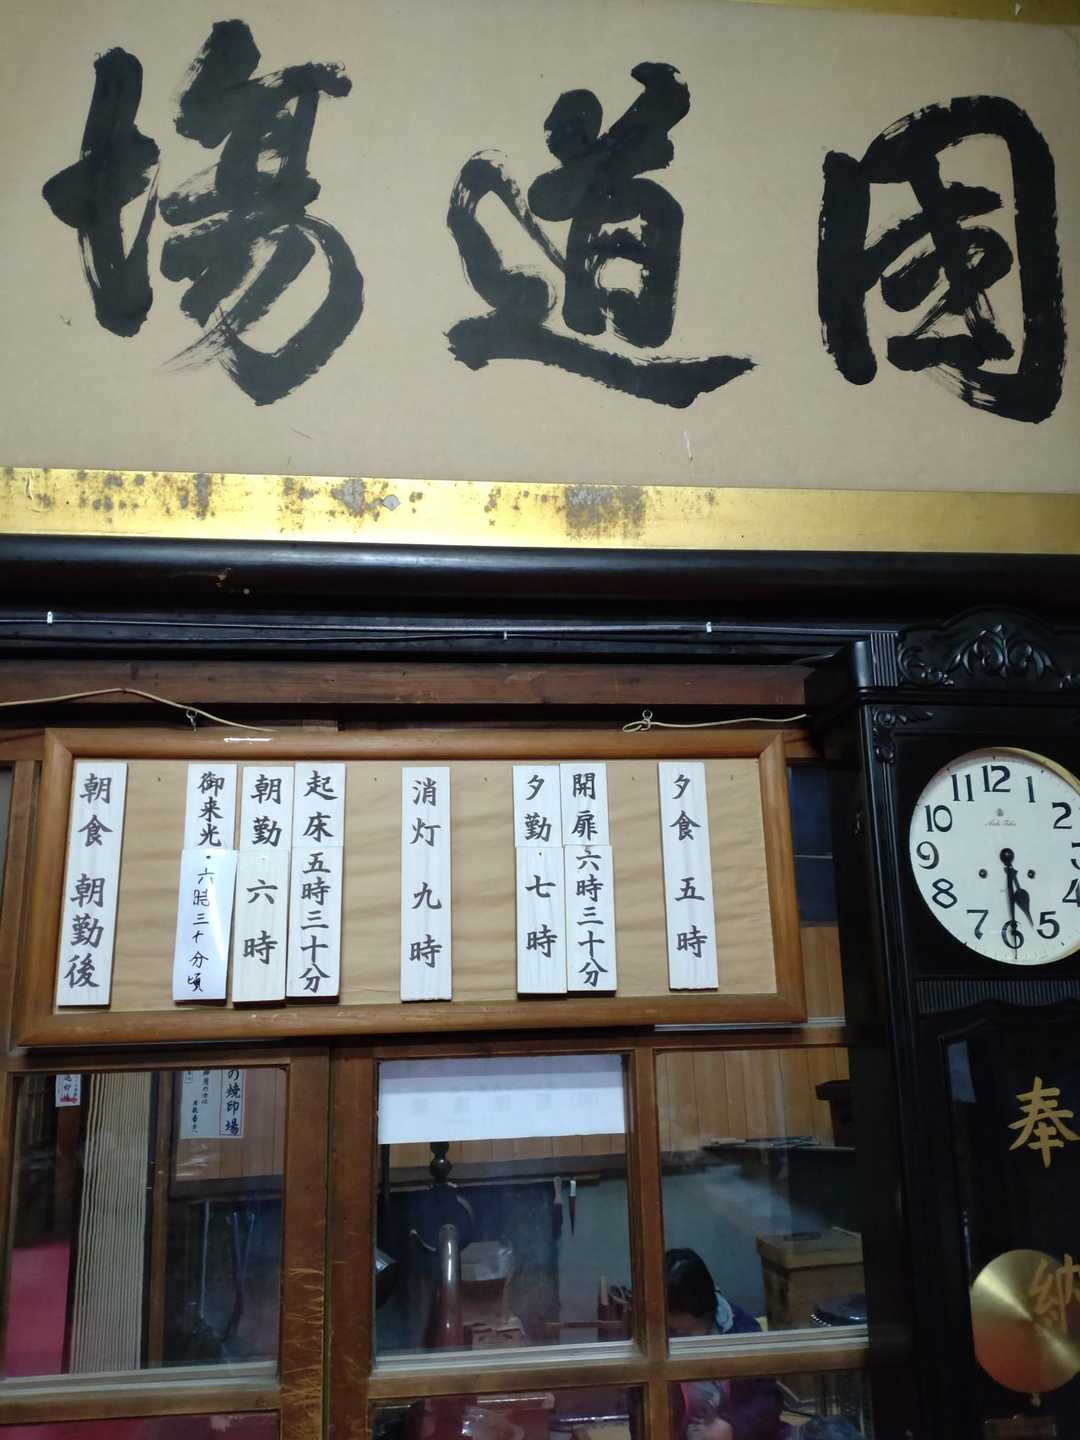 國道場
夕食 五時
開扉 六時三十分
夕勤 七時
消灯 九時
起床 五時三十分
朝勤 六時
御来光・六時三十分頃
朝食 朝勤後
12
1
2
3
4
5
6
7
8
9
10
11
奉納
の焼印場